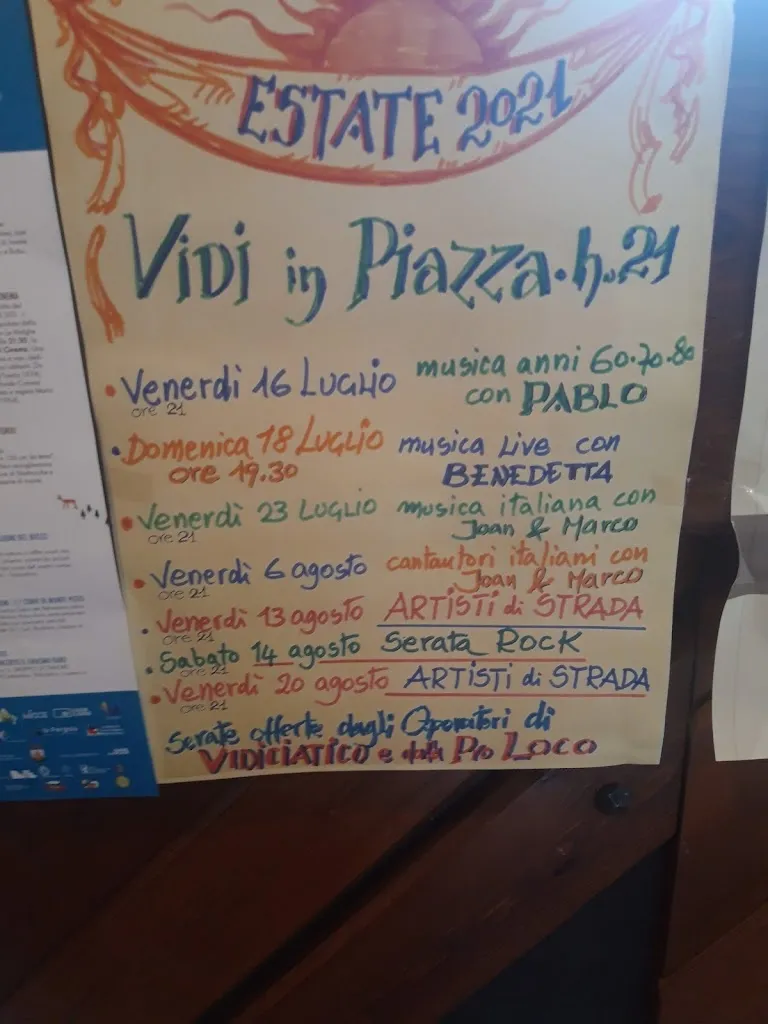 ESTATE 2021
Vidi in Piazza. h. 21
• Venerdì 16 LUGLIO musica anni 60.70.80
ore 21 con PABLO
• Domenica 18 LUGLIO musica Live con
ore 19.30 BENEDETTA
• Venerdì 23 LUGLIO musica italiana con
ore 21 Joan & Marco
• Venerdì 6 agosto cantautori italiani con
ore 21 Joan & Marco
• Venerdì 13 agosto ARTISTI di STRADA
ore 21
• Sabato 14 agosto Serata ROCK
ore 21
• Venerdì 20 agosto ARTISTI di STRADA
ore 21
Serate offerte dagli Operatori di
VIDICIATICO e dalla Pro Loco